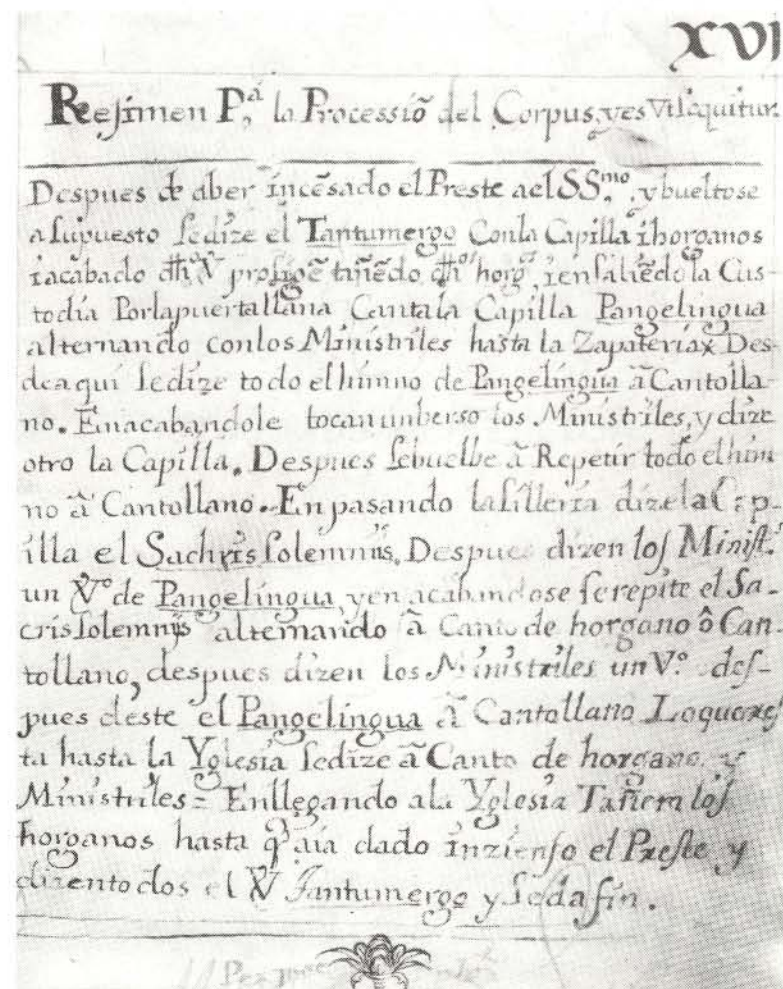 XVI
Resimen P.ª la Processiõ del Corpus, yes Vt sequitur.
Despues de aber incẽsado el Preste ael SS.mo, y bueltose
a su puesto se dize el Tantumergo Con la Capilla i horganos
i acabado dhº Vº prosigẽ tañẽdo dhºs horg.ºs, i en saliẽdo la Cus-
todia Por la puerta llana Canta la Capilla Pangelingua
alternando con los Ministriles hasta la Zapateria Des-
de aqui se dize todo el himno de Pangelingua ã Cantolla-
no. En acabandole tocan un berso los Ministriles, y dize
otro la Capilla. Despues se buelbe ã Repetir todo el him
no ã Cantollano. En pasando la silleria dize la Cap-
illa el Sachris solemniis. Despues dizen los Minist.s
un Vº de Pangelingua, y en acabandose se repite el Sa-
cris solemniis alternando ã Canto de horgano ô Can-
tollano, despues dizen los Ministriles un Vº. des-
pues deste el Pangelingua ã Cantollano Loque res
ta hasta la Yglesia se dize ã Canto de horgano. y
Ministriles= En llegando a la Yglesia Tañem los
horganos hasta q̃ aia dado inzienso el Preste y
dizen todos el V Tantumergo y se da fin.